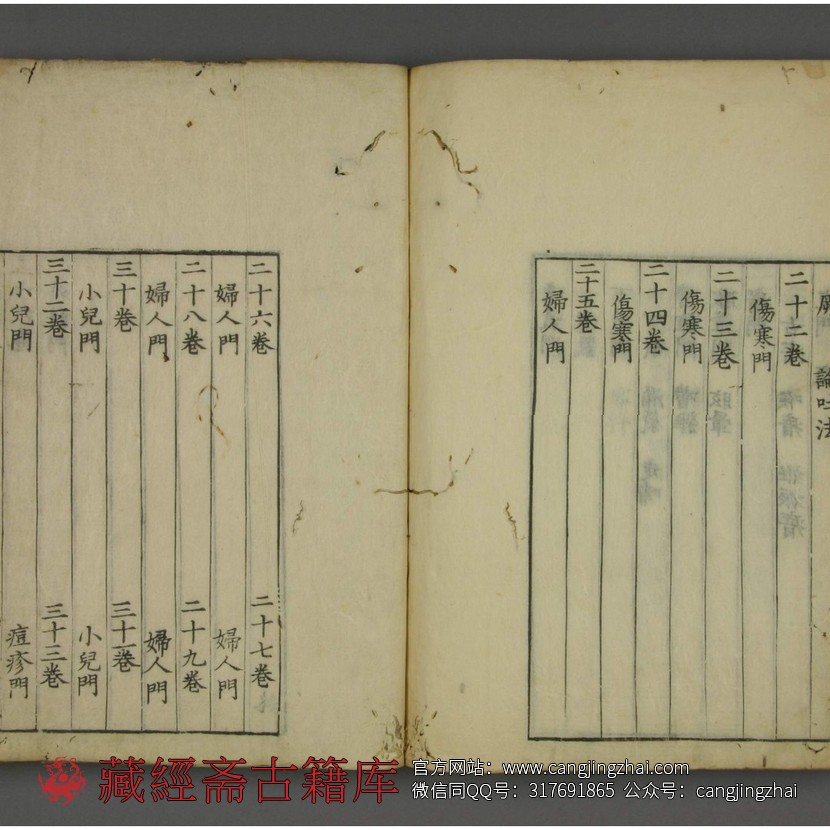 論吐法
二十二卷
傷寒門
二十三卷
傷寒門
二十四卷
傷寒門
二十五卷
婦人門
二十六卷 二十七卷
婦人門 婦人門
二十八卷 二十九卷
婦人門 婦人門
三十卷 三十一卷
小兒門 小兒門
三十二卷 三十三卷
小兒門 痘疹門
藏經斋古籍库
官方网站：www.cangjingzhai.com
微信同QQ号：317691865 公众号：cangjingzhai